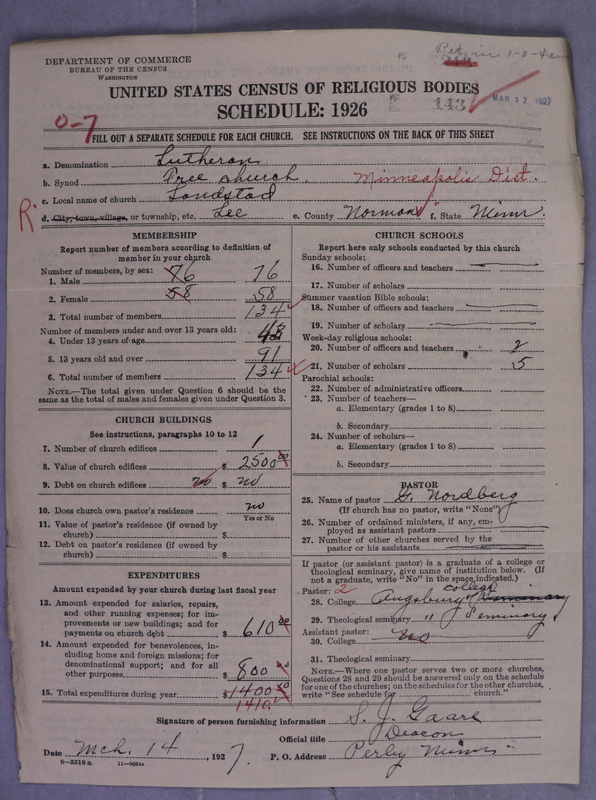 DEPARTMENT OF COMMERCE
BUREAU OF THE CENSUS
WASHINGTON
UNITED STATES CENSUS OF RELIGIOUS BODIES
SCHEDULE: 1926
143
MAR 17 1927
0-7
FILL OUT A SEPARATE SCHEDULE FOR EACH CHURCH. SEE INSTRUCTIONS ON THE BACK OF THIS SHEET
a. Denomination Lutheran
b. Synod Free church. Minneapolis Dist.
c. Local name of church Landstad
R. d. City, town, village, or township, etc. Lee e. County Norman f. State Minn.
MEMBERSHIP
Report number of members according to definition of
member in your church
Number of members, by sex:
1. Male 76 76
2. Female 58 58
3. Total number of members 134
Number of members under and over 13 years old:
4. Under 13 years of age 43
5. 13 years old and over 91
6. Total number of members 134
NOTE.—The total given under Question 6 should be
the same as the total of males and females given under Question 3.
CHURCH BUILDINGS
See instructions, paragraphs 10 to 12
7. Number of church edifices 1
8. Value of church edifices $ 2500 00
9. Debt on church edifices no $ no
10. Does church own pastor's residence? no
Yes or No
11. Value of pastor's residence (if owned by
church) $
12. Debt on pastor's residence (if owned by
church) $
EXPENDITURES
Amount expended by your church during last fiscal year
13. Amount expended for salaries, repairs,
and other running expenses; for im-
provements or new buildings; and for
payments on church debt $ 610 00
14. Amount expended for benevolences, in-
cluding home and foreign missions; for
denominational support; and for all
other purposes $ 800 00
15. Total expenditures during year $ 1400 00
1410
CHURCH SCHOOLS
Report here only schools conducted by this church
Sunday schools:
16. Number of officers and teachers
17. Number of scholars
Summer vacation Bible schools:
18. Number of officers and teachers
19. Number of scholars
Week-day religious schools:
20. Number of officers and teachers 2
21. Number of scholars 5
Parochial schools:
22. Number of administrative officers
23. Number of teachers—
a. Elementary (grades 1 to 8)
b. Secondary
24. Number of scholars—
a. Elementary (grades 1 to 8)
b. Secondary
PASTOR
25. Name of pastor G. Nordberg
(If church has no pastor, write "None")
26. Number of ordained ministers, if any, em-
ployed as assistant pastors
27. Number of other churches served by the
pastor or his assistants
If pastor (or assistant pastor) is a graduate of a college or
theological seminary, give name of institution below. (If
not a graduate, write "No" in the space indicated.)
Pastor: 2
28. College Augsburg college Seminary
29. Theological seminary " Seminary
Assistant pastor:
30. College no
31. Theological seminary
NOTE.—Where one pastor serves two or more churches,
Questions 28 and 29 should be answered only on the schedule
for one of the churches; on the schedules for the other churches,
write "See schedule for church."
Signature of person furnishing information S. J. Gaare
Official title Deacon
Date Mch. 14, 1927. P. O. Address Perley Minn.
8-5518 a